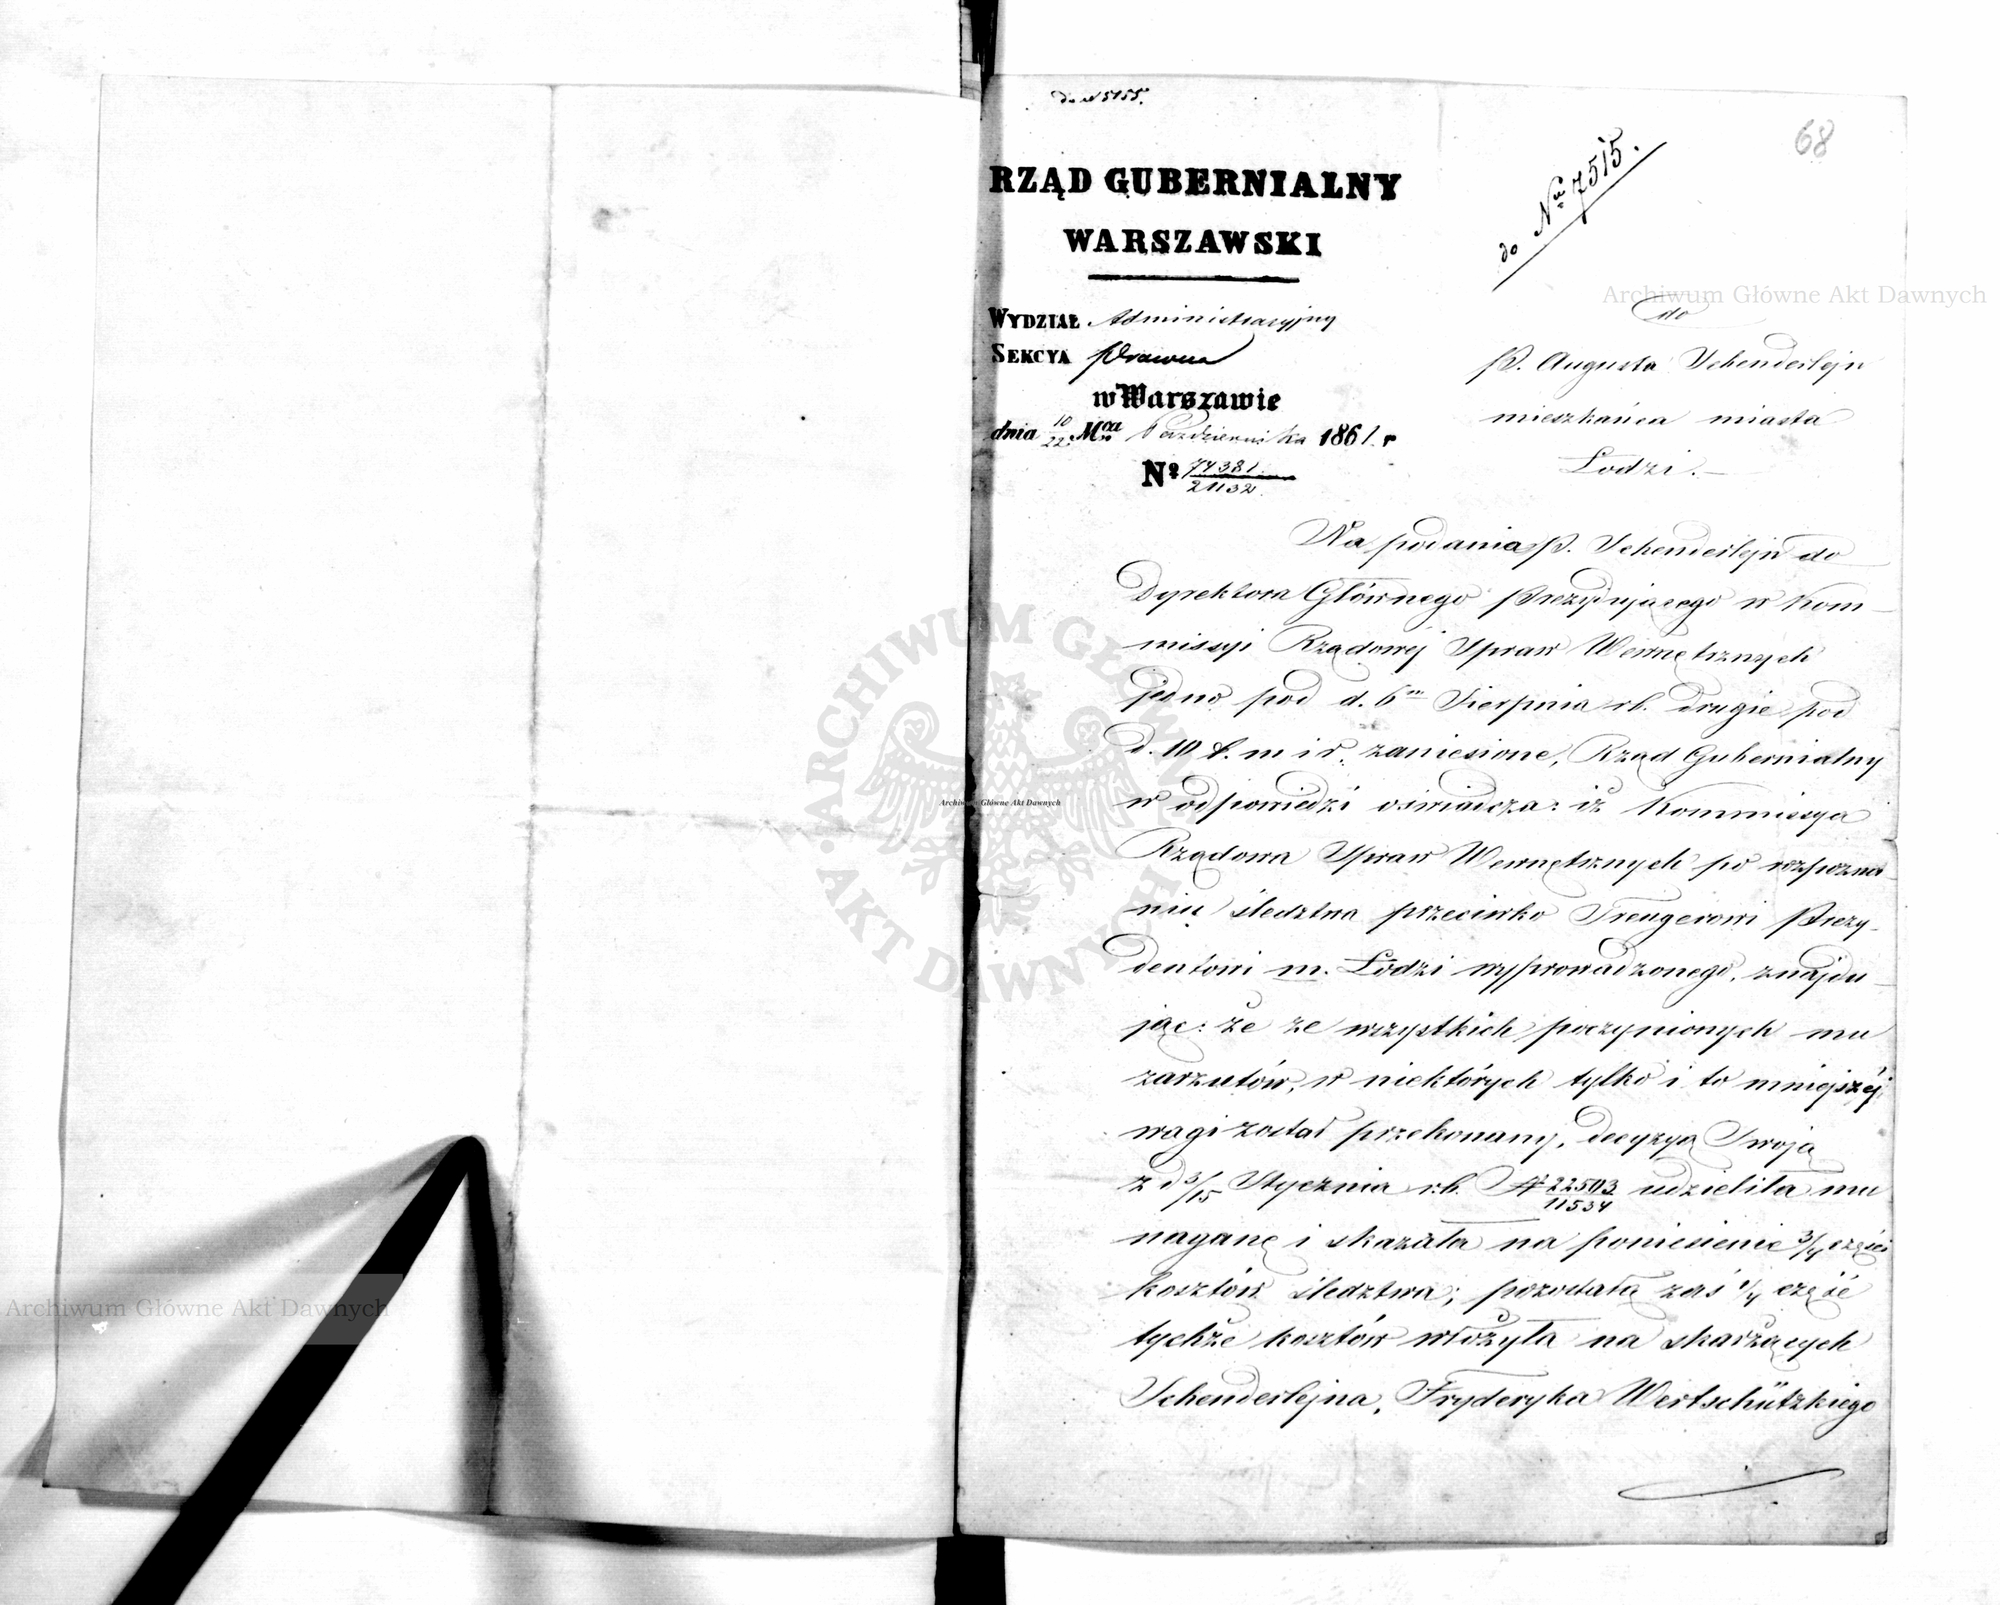 do N 5155.
68
do No 7515.
RZĄD GUBERNIALNY
WARSZAWSKI
WYDZIAŁ Administracyjny
SEKCYA Prawna
w Warszawie
dnia 10/22 Mca Października 1861 r
No 74381/21132
do
P. Augusta Schenderlejn
mieszkańca miasta
Łodzi.
Na podania P. Schenderlejn do
Dyrektora Głównego Prezydującego w Kom-
missyi Rządowej Spraw Wewnętrznych
jedno pod d. 6m Sierpnia r.b. drugie pod
d. 10 b. m i r. zaniesione, Rząd Gubernialny
w odpowiedzi oświadcza: iż Kommissya
Rządowa Spraw Wewnętrznych po rozpozna-
niu śledztwa przeciwko Treugerowi Prezy-
dentowi m. Łodzi wyprowadzonego, znajdu-
jąc: że ze wszystkich poczynionych mu
zarzutów, w niektórych tylko i to mniejszéj
wagi został przekonany, decyzyą Swoją
z d 3/15 Stycznia r.b. N 22503/11534 udzieliła mu
naganę i skazała na poniesienie 3/4 części
kosztów śledztwa; pozostałą zaś 1/4 część
tychże kosztów włożyła na skarżących
Schenderlejna, Fryderyka Wertschützkiego
Archiwum Główne Akt Dawnych
Archiwum Główne Akt Dawnych
Archiwum Główne Akt Dawnych
ARCHIWUM GŁÓWNE AKT DAWNYCH